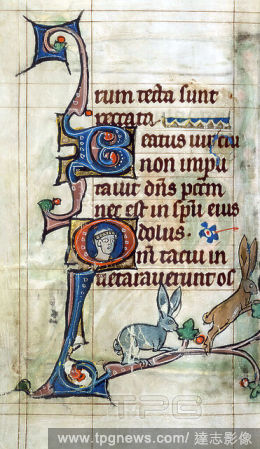 rum tecta sunt
peccata
Beatus uir cui
non impu
tauit dñs pccm
nec est in spu eius
dolus.
Qm tacui in
ueterauerunt os
TPG
www.tpgnews.com/ 達志影像